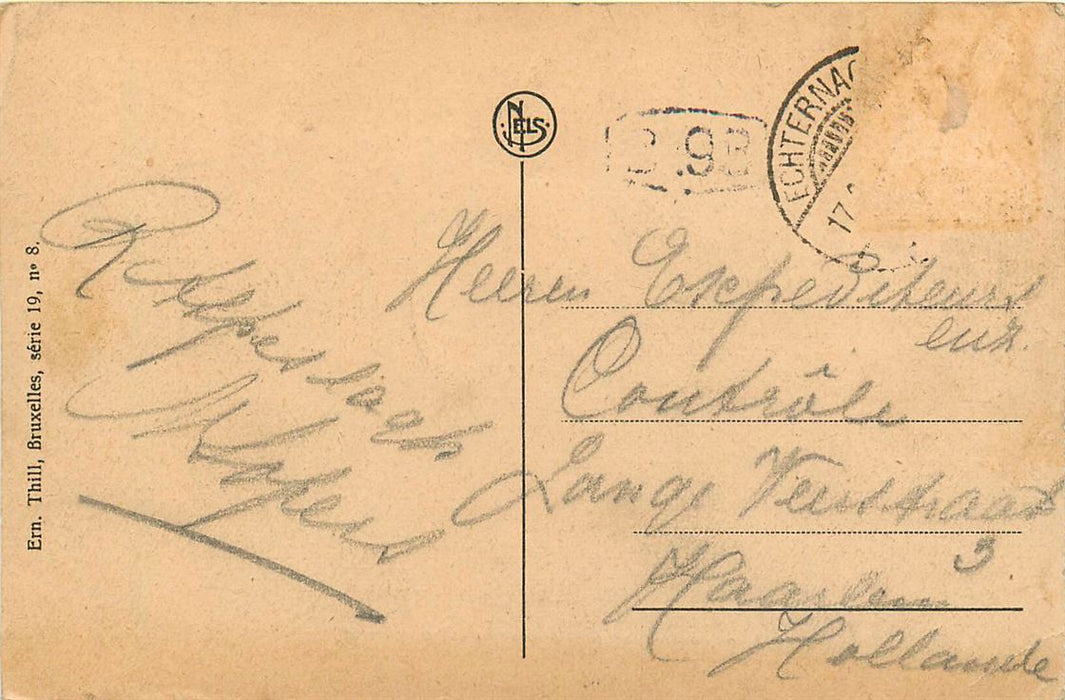 Ern. Thill, Bruxelles, série 19, nº 8.
NELS
ECHTERNAC
17.
Heeren Expediteurs
enz.
Contrôle
Lange Veerstraat
3
Haarlem
Hollande